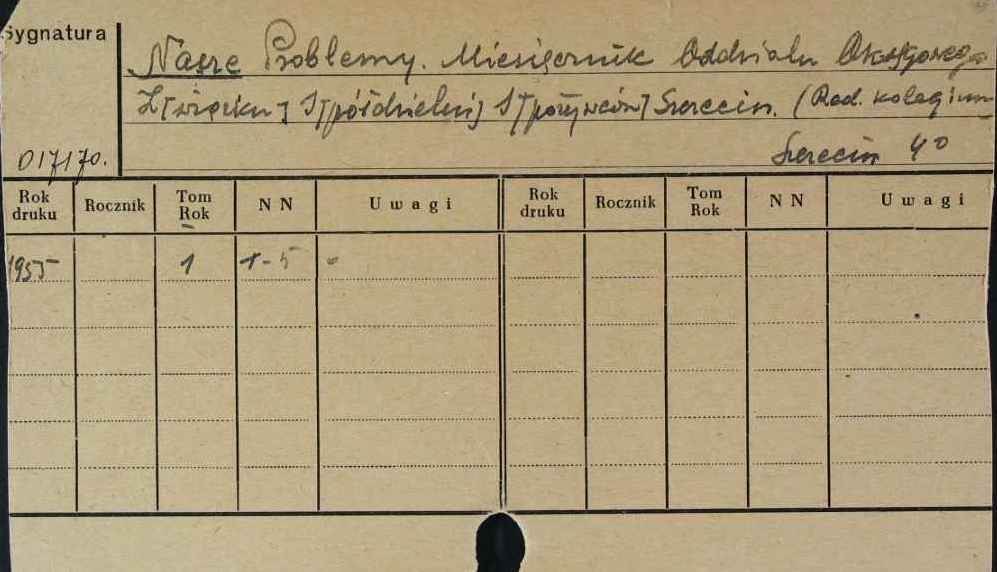 Sygnatura
Nasze Problemy. Miesięcznik Oddziału Okręgowego
Z[wiązku] S[półdzielni] S[pożywców] Szczecin. (Red. kolegium
017170.
Szczecin 4°
Rok druku Rocznik Tom Rok N N Uwagi Rok druku Rocznik Tom Rok N N Uwagi
1955 1 1-5